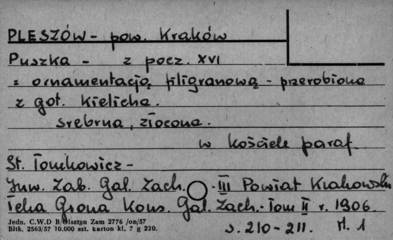 PLESZÓW - pow. Kraków
Puszka - z pocz. XVI
z ornamentacją filigranową - przerobiona
z got. kielicha.
srebrna, złocona.
w kościele paraf.
St. Tomkowicz -
Inw. Zab. Gal. Zach. III Powiat Krakowski
Teka Grona Kons. Gal. Zach. - Tom II r. 1906.
s. 210-211. M. 1
Jedn. C.W.D B/Olsztyn Zam 2776 /on/57
Bltk. 2563/57 10.000 szt. karton kl. 7 g 220.